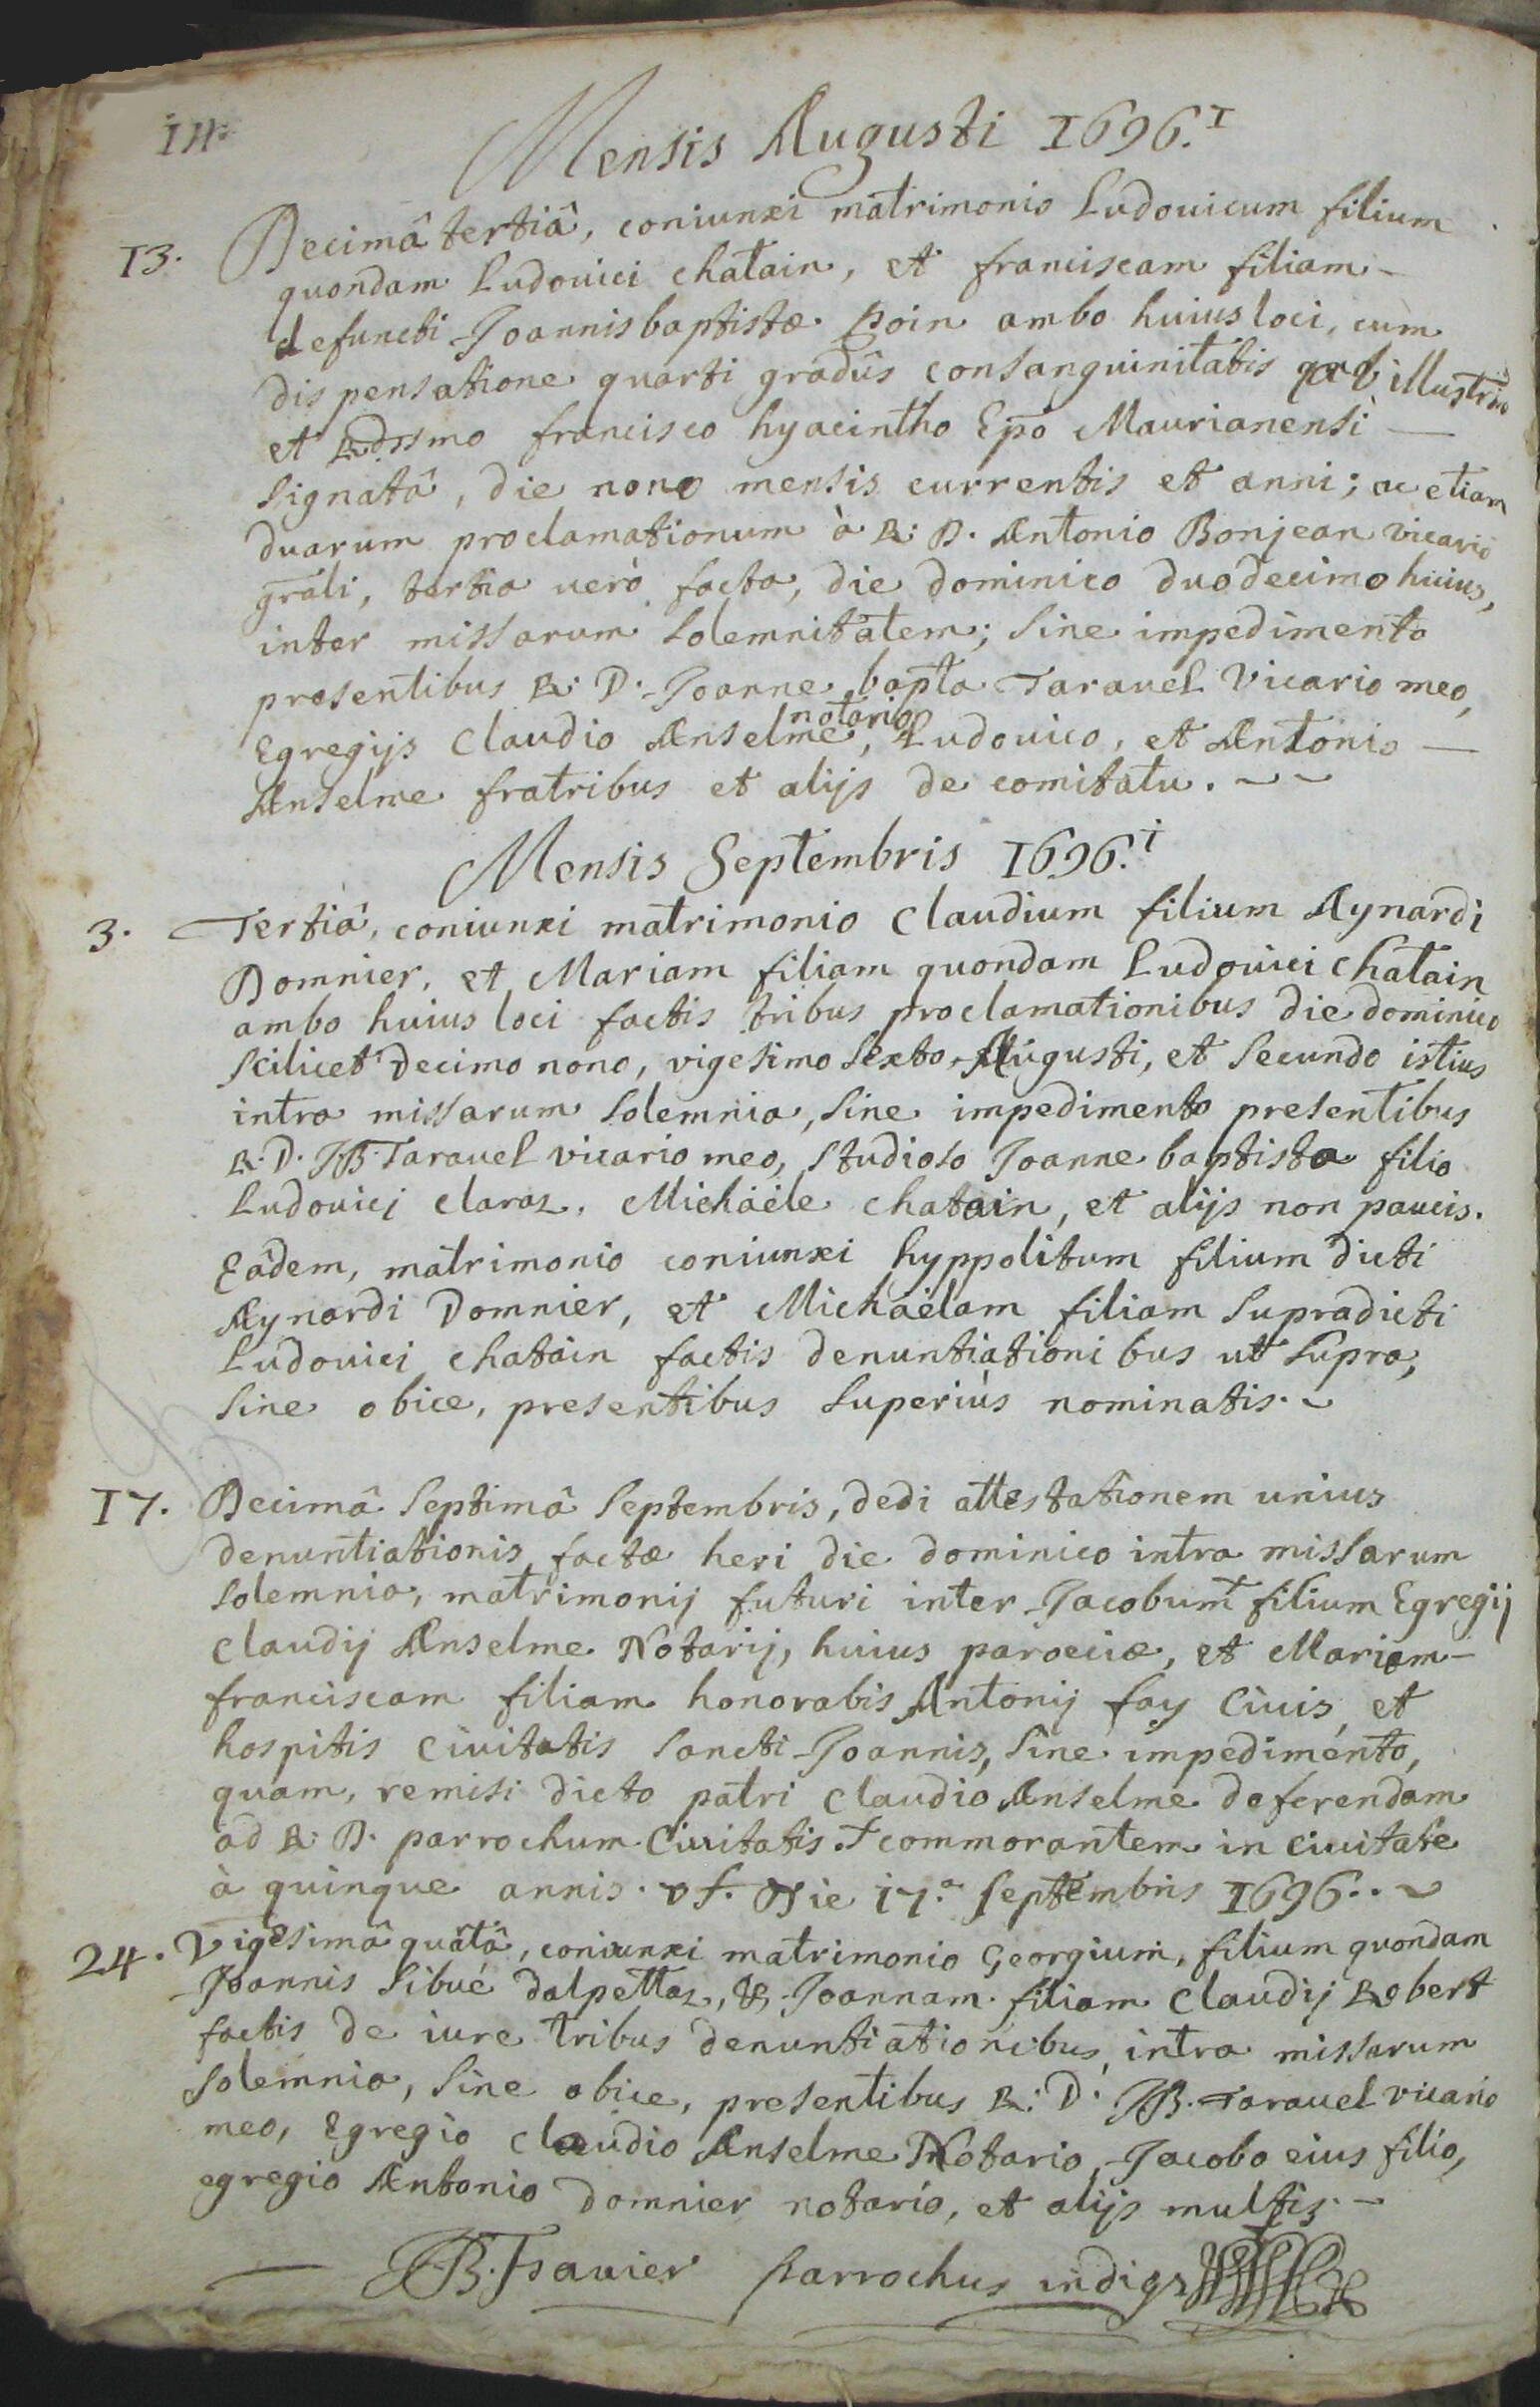 Mensis Augusti 1696.I
13. Decimâ tertiâ, coniunxi matrimonio Ludouicum filium
quondam Ludouici chatain, et franciscam filiam-
defuncti Joannisbaptistæ Poin ambo huius loci, cum
dispensatione quarti gradûs consanguinitatis ab illustrmo
et Rdssmo francisco hyacintho Epo Maurianensi —
signatâ, die nono mensis currentis et anni; ac etiam
duarum proclamationum à R: D. Antonio Bonjean vicario
grali, tertia uerò facta, die dominico duodecimo huius,
inter missarum solemnitatem; sine impedimento
presentibus R: D. Joanne bapta Tarauel Vicario meo,
Egregijs Claudio Anselme notario, Ludouico, et Antonio —
Anselme fratribus et alijs de comitatu. ~ ~
Mensis Septembris 1696.i
3. Tertiâ, coniunxi matrimonio Claudium filium Aynardi
Domnier, et Mariam filiam quondam Ludouici chatain
ambo huius loci factis tribus proclamationibus die dominico
scilicet decimo nono, vigesimo sexto, Augusti, et secundo istius
intra missarum solemnia, sine impedimento presentibus
R: D. JB. Tarauel vicario meo, studioso Joanne baptista filio
Ludouicj claraz, Michäele chatain, et alijs non paucis.
Eâdem, matrimonio coniunxi hyppolitum filium dicti
Aynardi Domnier, et Michäelam filiam supradicti
Ludouici chatain factis denuntiationibus ut supra,
sine obice, presentibus superiùs nominatis. ~
17. Decimâ septimâ septembris, dedi attestationem unius
denuntiationis factæ heri die dominico intra missarum
solemnia, matrimonij futuri inter Jacobum + filium Egregij
Claudij Anselme Notarij, huius parociæ, et Mariam-
franciscam filiam honorabis Antonij fay Ciuis, et
hospitis Ciuitatis sancti Joannis, sine impedimento,
quam, remisi dicto patri Claudio Anselme deferendam
ad R: D. parrochum Ciuitatis. + commorantem in Ciuitate
à quinque annis. Die 17.a septembris 1696.. ~
24. Vigesimâ quartâ, coniunxi matrimonio Georgium, filium quondam
Joannis Sibué dalpettaz, & Joannam filiam Claudij Robert
factis de iure tribus denuntiationibus, intra missarum
solemnia, sine obice, presentibus R: D. JB. Tarauel vicario
meo, Egregio Claudio Anselme Notario, Jacobo eius filio,
egregio Antonio Domnier notario, et alijs multis. -
parrochus indigs